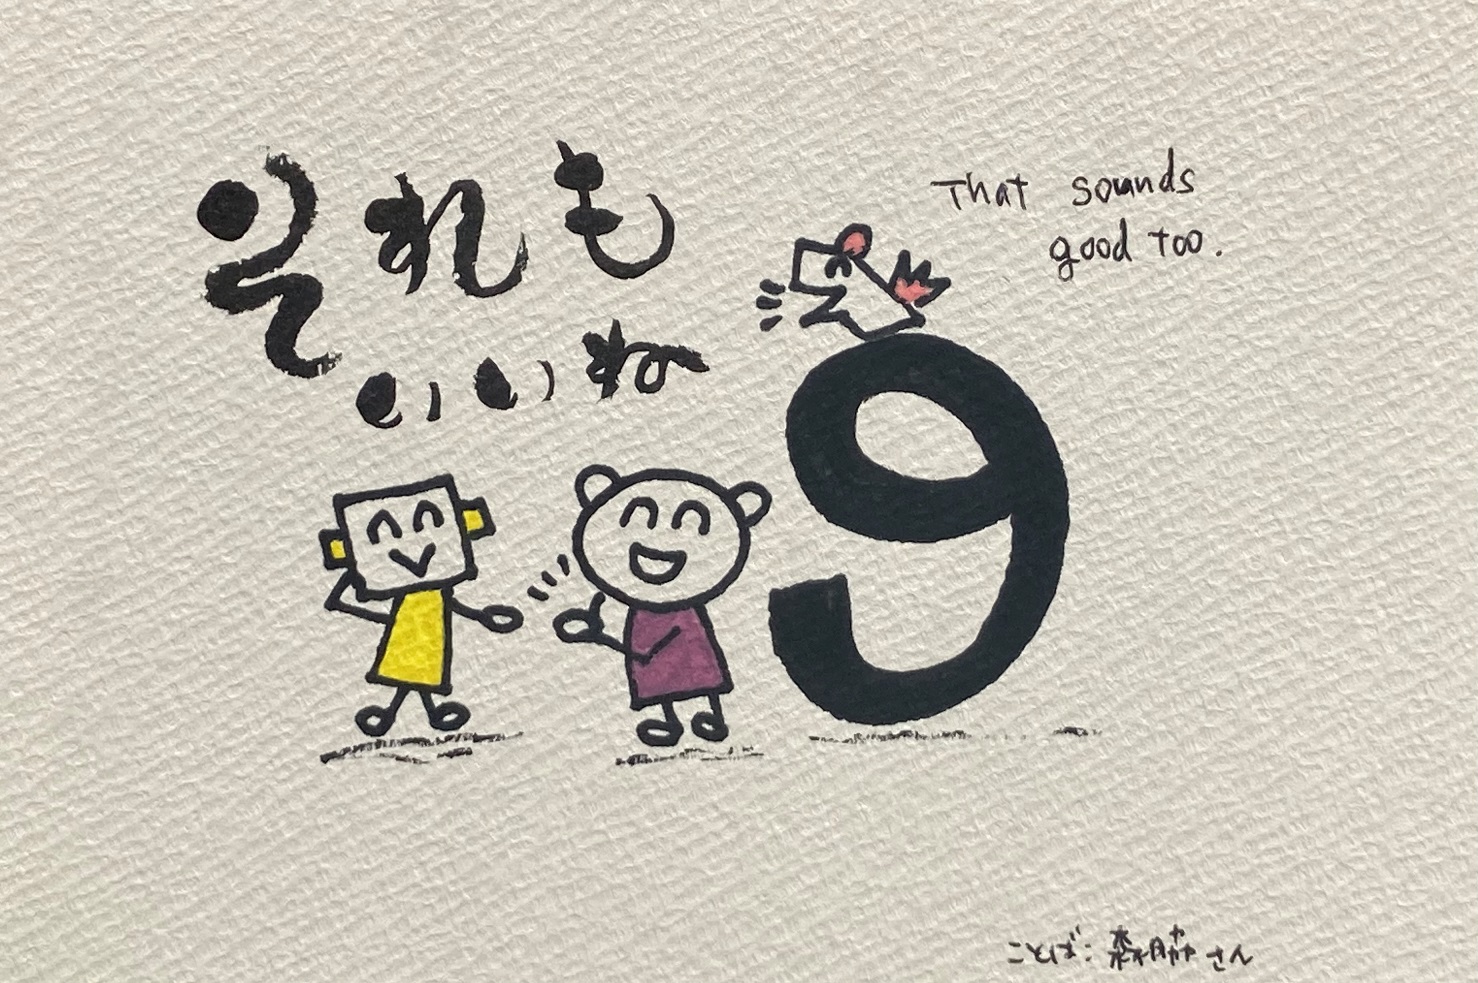 それも
いいね
That sounds
good too.
9
ことば:森脇さん